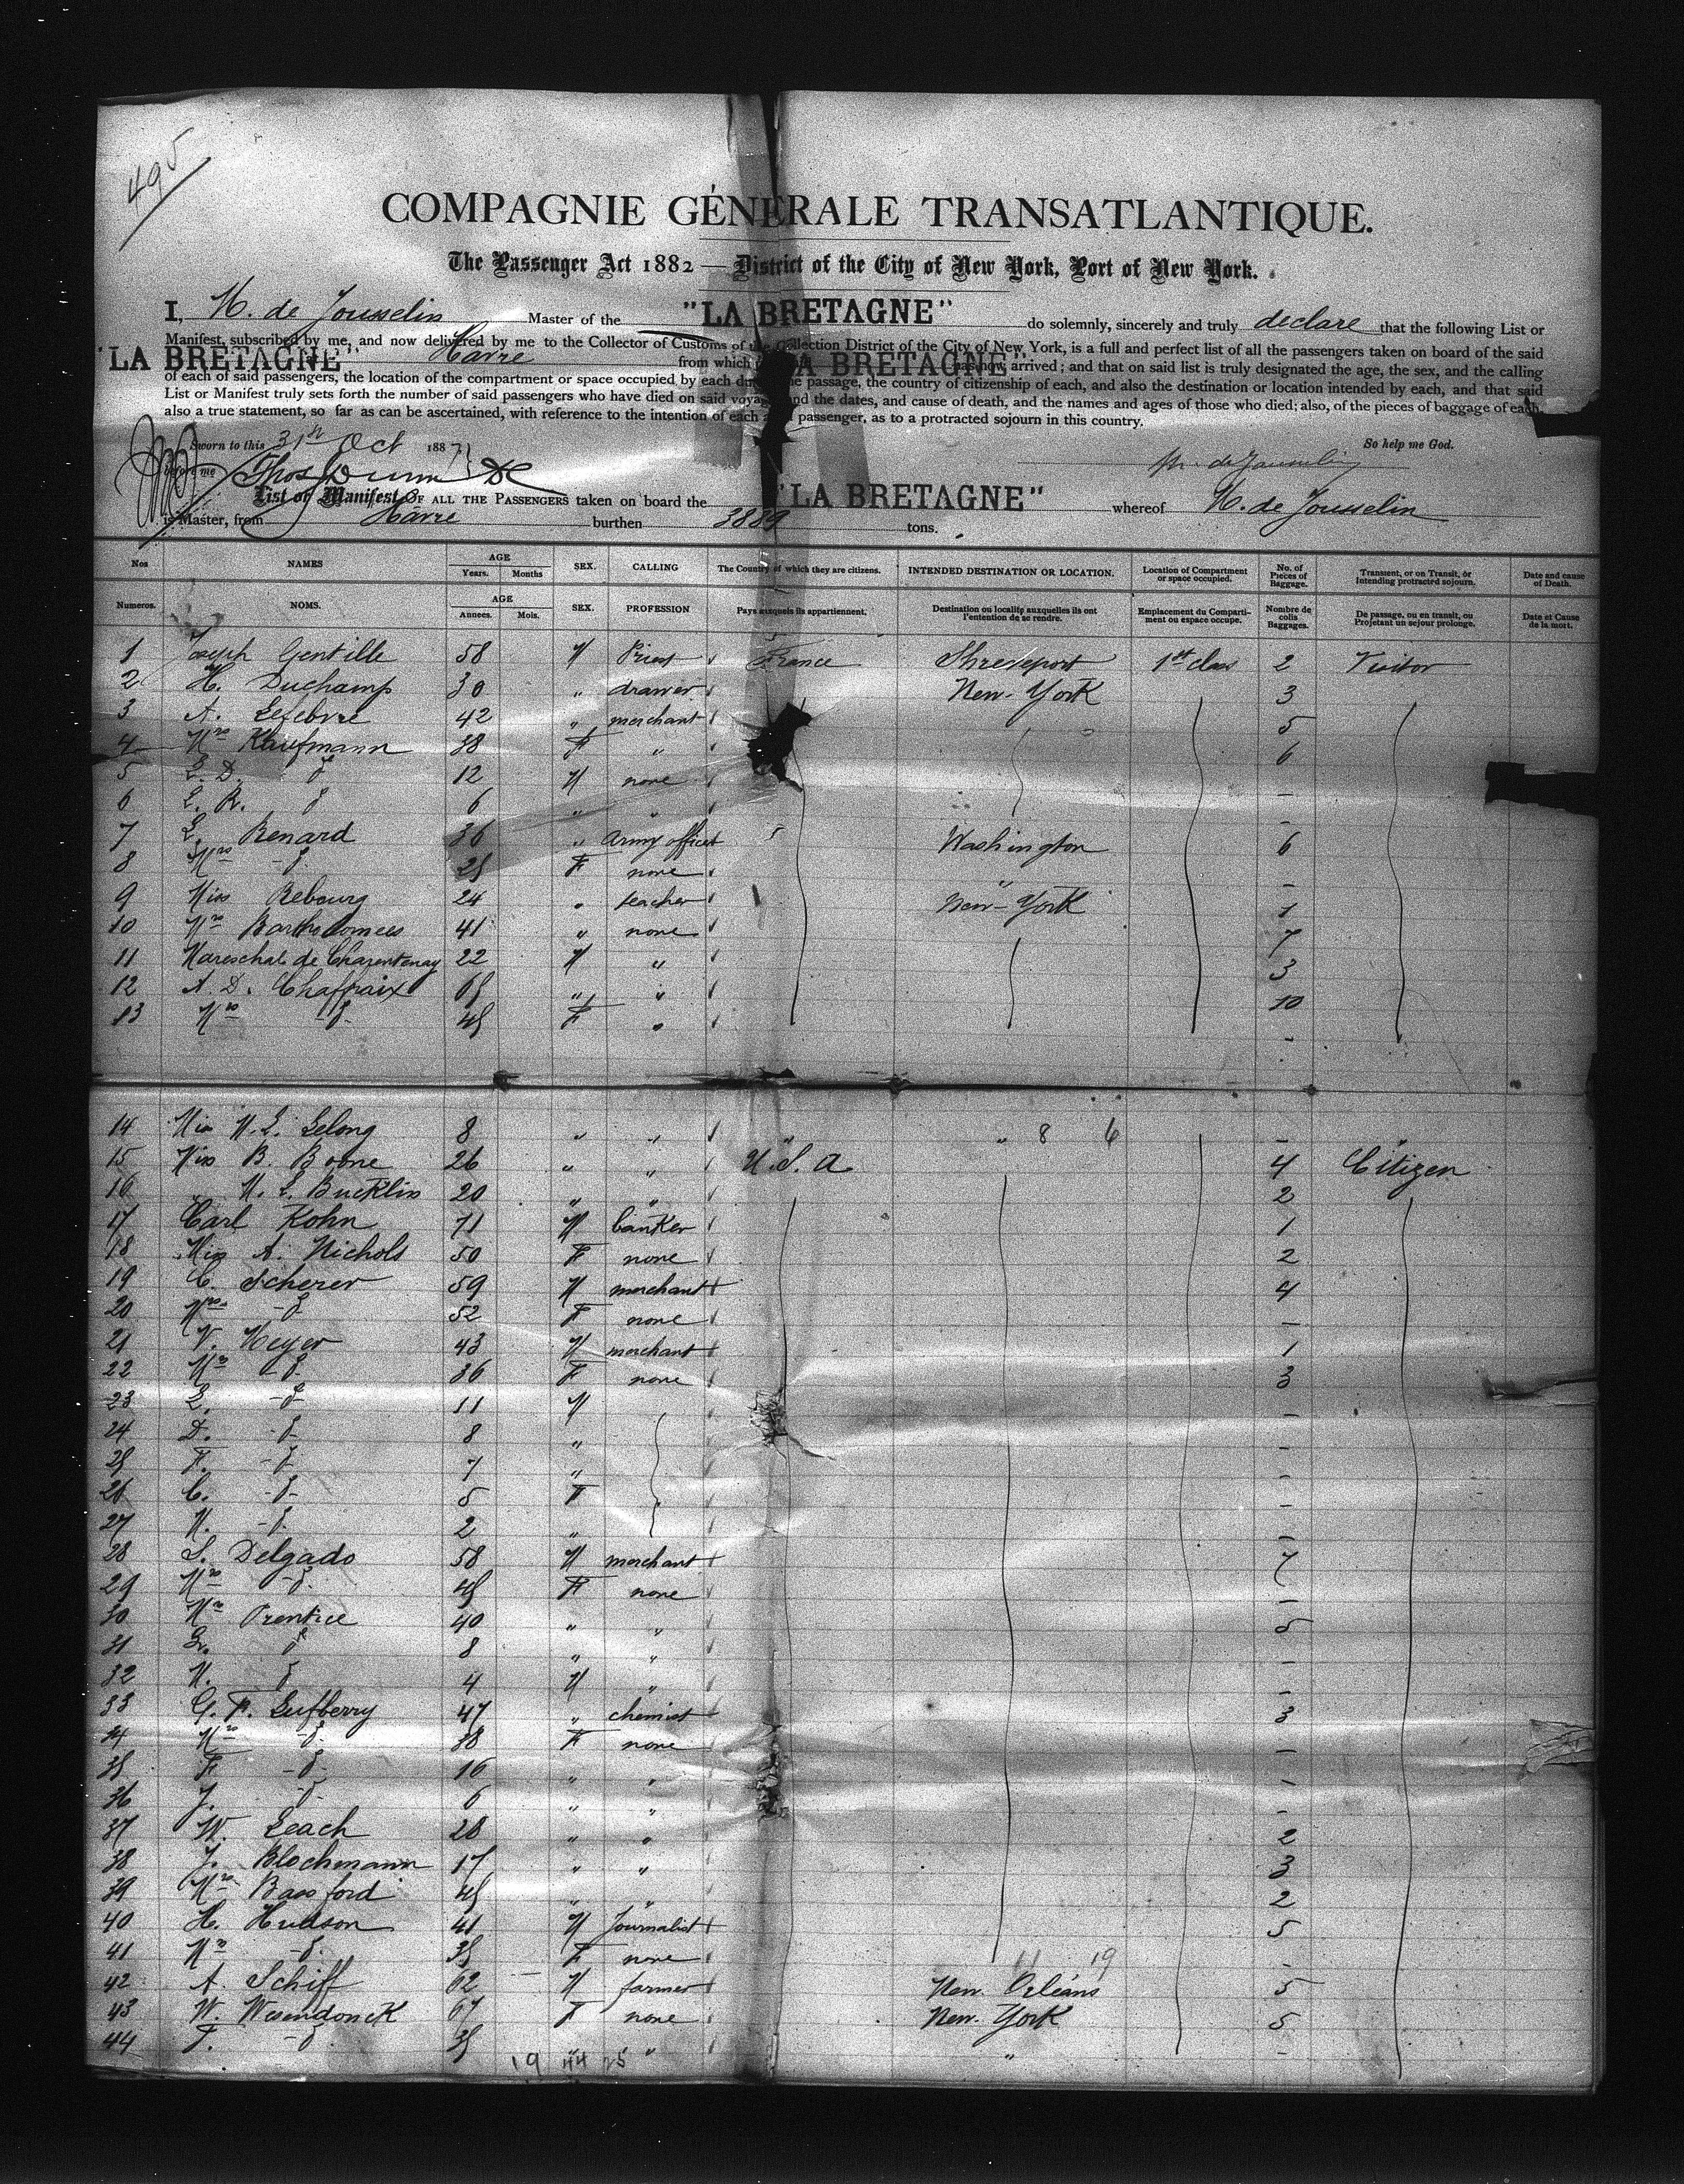 495
COMPAGNIE GÉNÉRALE TRANSATLANTIQUE.
The Passenger Act 1882 — District of the City of New York, Port of New York.
I, M. de Jousselin Master of the "LA BRETAGNE" do solemnly, sincerely and truly declare that the following List or
Manifest, subscribed by me, and now delivered by me to the Collector of Customs of the Collection District of the City of New York, is a full and perfect list of all the passengers taken on board of the said
"LA BRETAGNE" Havre from which "LA BRETAGNE" has now arrived; and that on said list is truly designated the age, the sex, and the calling
of each of said passengers, the location of the compartment or space occupied by each during the passage, the country of citizenship of each, and also the destination or location intended by each, and that said
List or Manifest truly sets forth the number of said passengers who have died on said voyage and the dates, and cause of death, and the names and ages of those who died; also, of the pieces of baggage of each,
also a true statement, so far as can be ascertained, with reference to the intention of each passenger, as to a protracted sojourn in this country.
Sworn to this 31st Oct 1887 So help me God.
before me Thos Dunn DC M. de Jousselin
List or Manifest OF ALL THE PASSENGERS taken on board the "LA BRETAGNE" whereof M. de Jousselin
is Master, from Havre burthen 3889 tons.
Nos NAMES AGE Years. Months SEX. CALLING The Country of which they are citizens. INTENDED DESTINATION OR LOCATION. Location of Compartment or space occupied. No. of Pieces of Baggage. Transient, or on Transit, or Intending protracted sojourn. Date and cause of Death.
Numeros. NOMS. AGE Annees. Mois. SEX. PROFESSION Pays auxquels ils appartiennent. Destination ou localite auxquelles ils ont l'entention de se rendre. Emplacement du Compartiment ou espace occupe. Nombre de colis Baggages. De passage, ou en transit, ou Projetant un sejour prolonge. Date et Cause de la mort.
1 Joseph Gentille 58 M Priest France Shreveport 1st class 2 Visitor
2 H. Duchamp 30 " drawer New-York 3
3 A. Lefebvre 42 " merchant 5
4 Mrs Kaufmann 38 F " 6
5 E. D. d° 12 M none -
6 L. R. d° 6 " " -
7 L. Renard 36 " Army officer Washington 6
8 Mrs - d° 25 F none " -
9 Miss Rebourg 24 " teacher New-York 1
10 Mrs Bartholomees 41 " none 7
11 Mareschal de Charentenay 22 M " 3
12 A. D. Chaffraix 65 " " 10
13 Mrs - d° 45 F " -
14 Miss M. L. Lelong 8 " " " " 8 6 -
15 Miss B. Boone 26 " " U.S.A 4 Citizen
16 M. L. Bucklin 20 " " 2
17 Carl Kohn 71 M banker 1
18 Miss A. Nichols 50 F none 2
19 C. Scherer 59 M merchant 4
20 Mrs - d° 52 F none -
21 V. Meyer 43 M merchant 1
22 Mrs - d° 36 F none 3
23 E. - d° 11 M -
24 D. - d° 8 " -
25 F. - d° 7 " -
26 C. - d° 5 F -
27 M. - d° 2 " -
28 S. Delgado 58 M merchant 7
29 Mrs - d° 45 F none -
30 Mrs Prentice 40 " " 5
31 d° 8 " " -
32 M. d° 4 M " -
33 G. F. Lufberry 47 " chemist 3
34 Mrs - d° 38 F none -
35 F - d° 16 " " -
36 J. - d° 6 " " -
37 W. Leach 28 " " 2
38 J. Blochmann 17 " " 3
39 Mrs Bassford 45 " " 2
40 H. Hudson 41 M Journalist 5
41 Mrs - d° 35 F none 11 19 -
42 A. Schiff 62 M farmer New Orleans 5
43 W. Wesendonck 67 F none New-York 5
44 F. - d° 35 " " " -
19 44 25